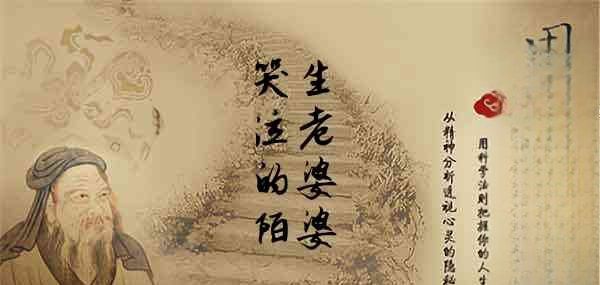 哭泣的陌
生老婆婆
从精神分析透视心灵的隐秘
用科学法则把握你的人生